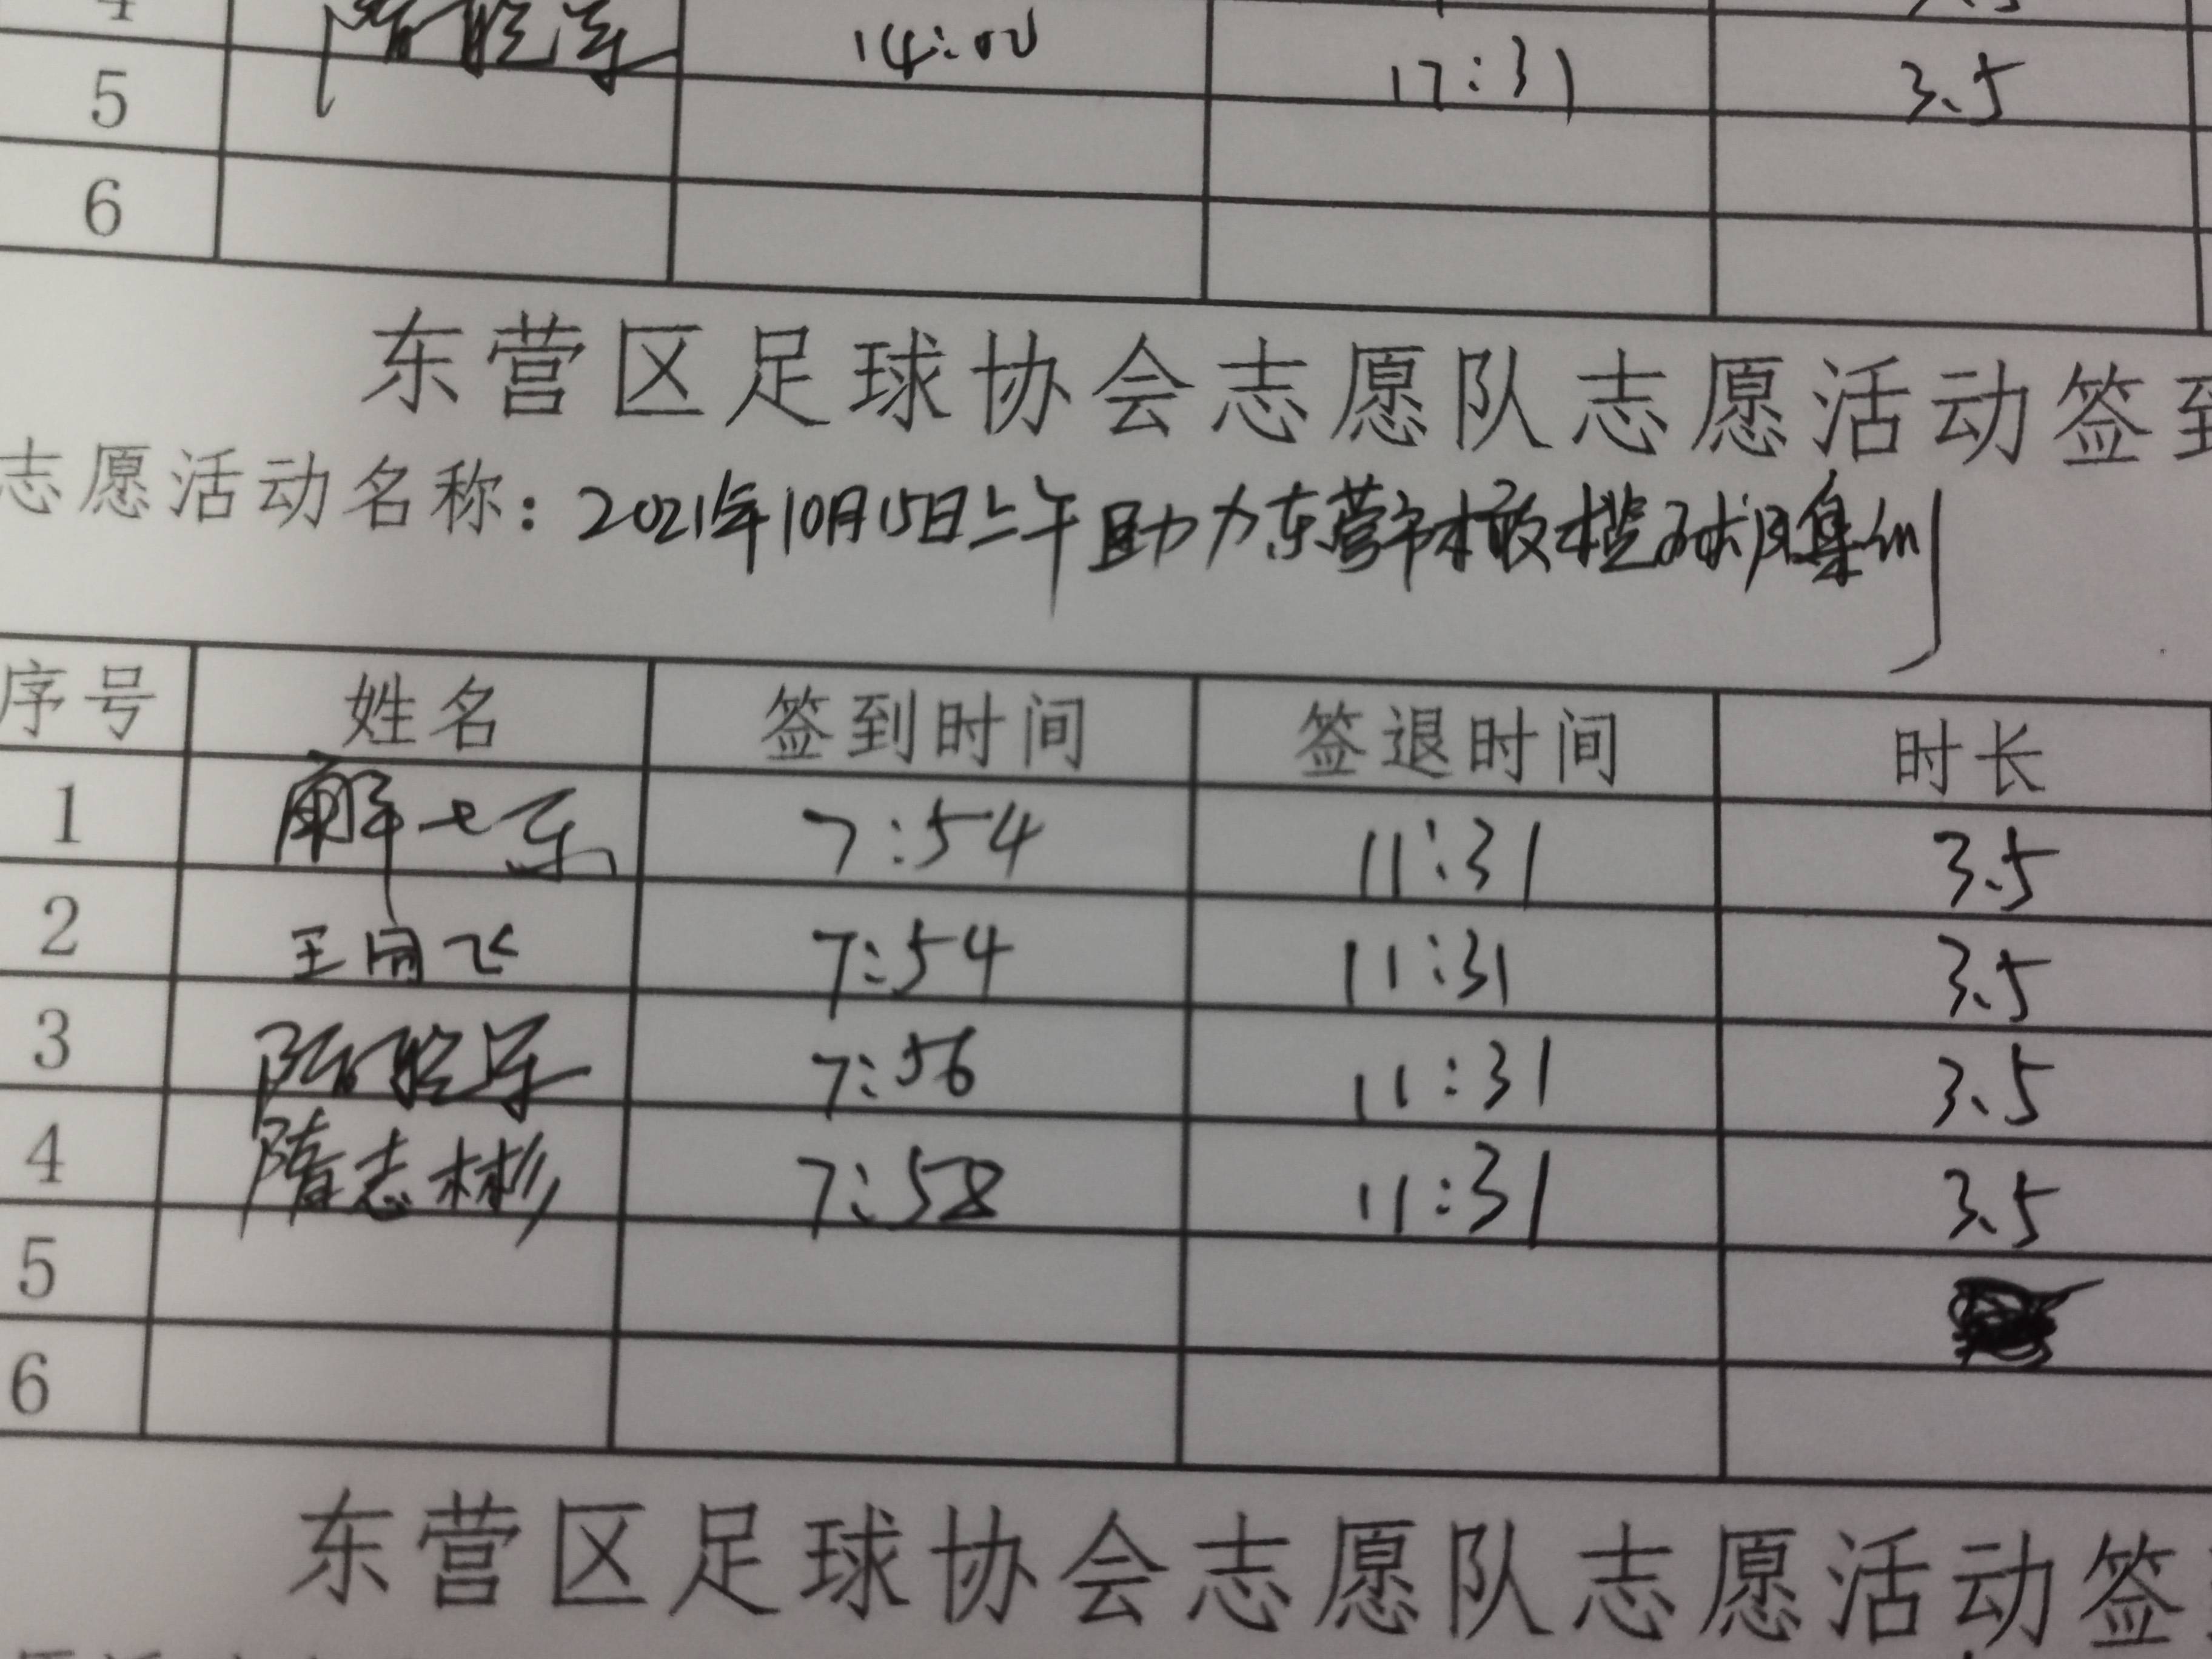 14:00 17:31 3.5
5
6
东营区足球协会志愿队志愿活动签到
志愿活动名称：2021年10月15日上午助力东营市橄榄球队集训
序号 姓名 签到时间 签退时间 时长
1 解士东 7:54 11:31 3.5
2 王闰飞 7:54 11:31 3.5
3 7:56 11:31 3.5
4 隋志彬 7:58 11:31 3.5
5
6
东营区足球协会志愿队志愿活动签